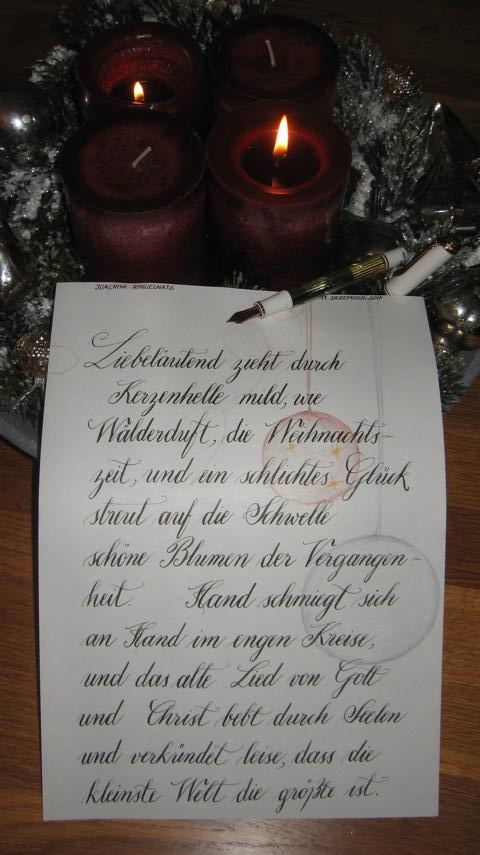 JOACHIM RINGELNATZ
11. DEZEMBER, 2017
Liebeläutend zieht durch
Kerzenhelle mild, wie
Wälderduft, die Weihnachts-
zeit, und ein schlichtes Glück
streut auf die Schwelle
schöne Blumen der Vergangen-
heit. Hand schmiegt sich
an Hand im engen Kreise,
und das alte Lied von Gott
und Christ bebt durch Seelen
und verkündet leise, dass die
kleinste Welt die größte ist.